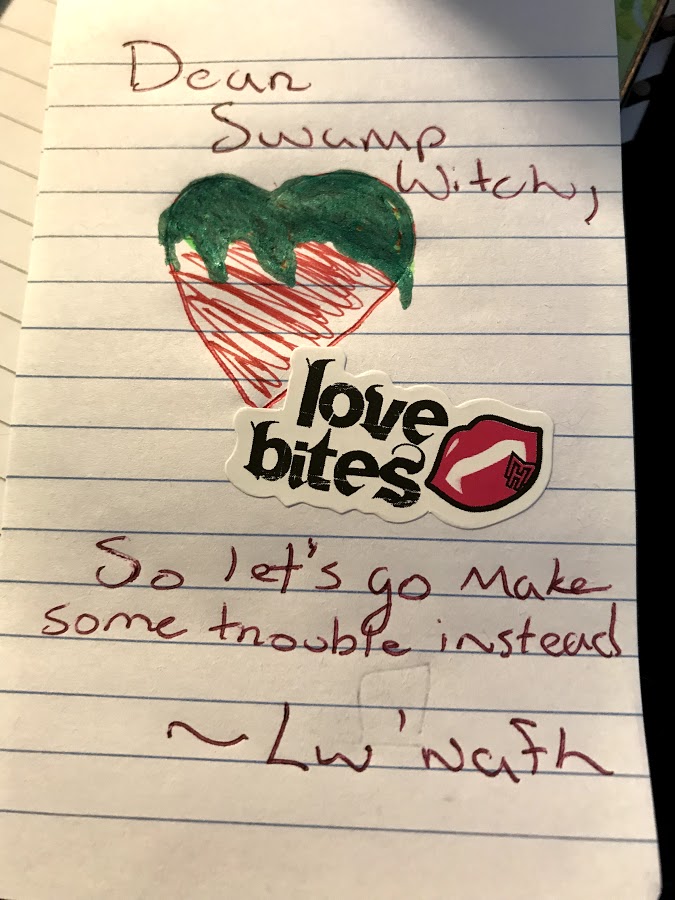 Dear
Swamp
Witch,
love
bites
H
So let's go Make
some trouble instead
~ Lw'nafh